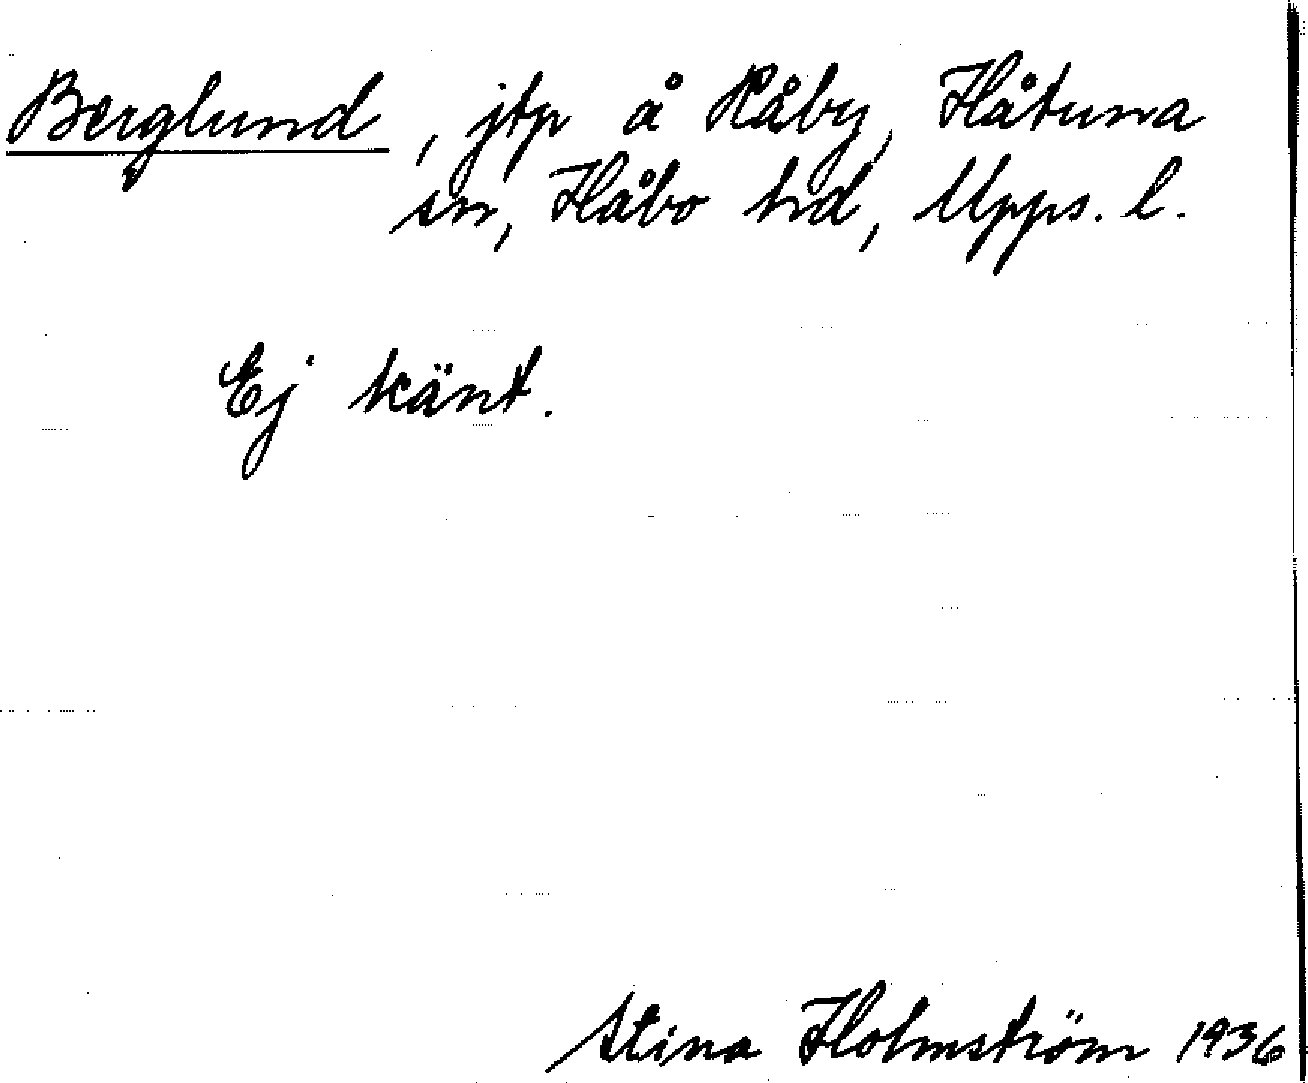 Berglund, jtp å Råby, Håtuna
sn, Håbo hd, Upps. l.
Ej känt.
Stina Holmström 1936